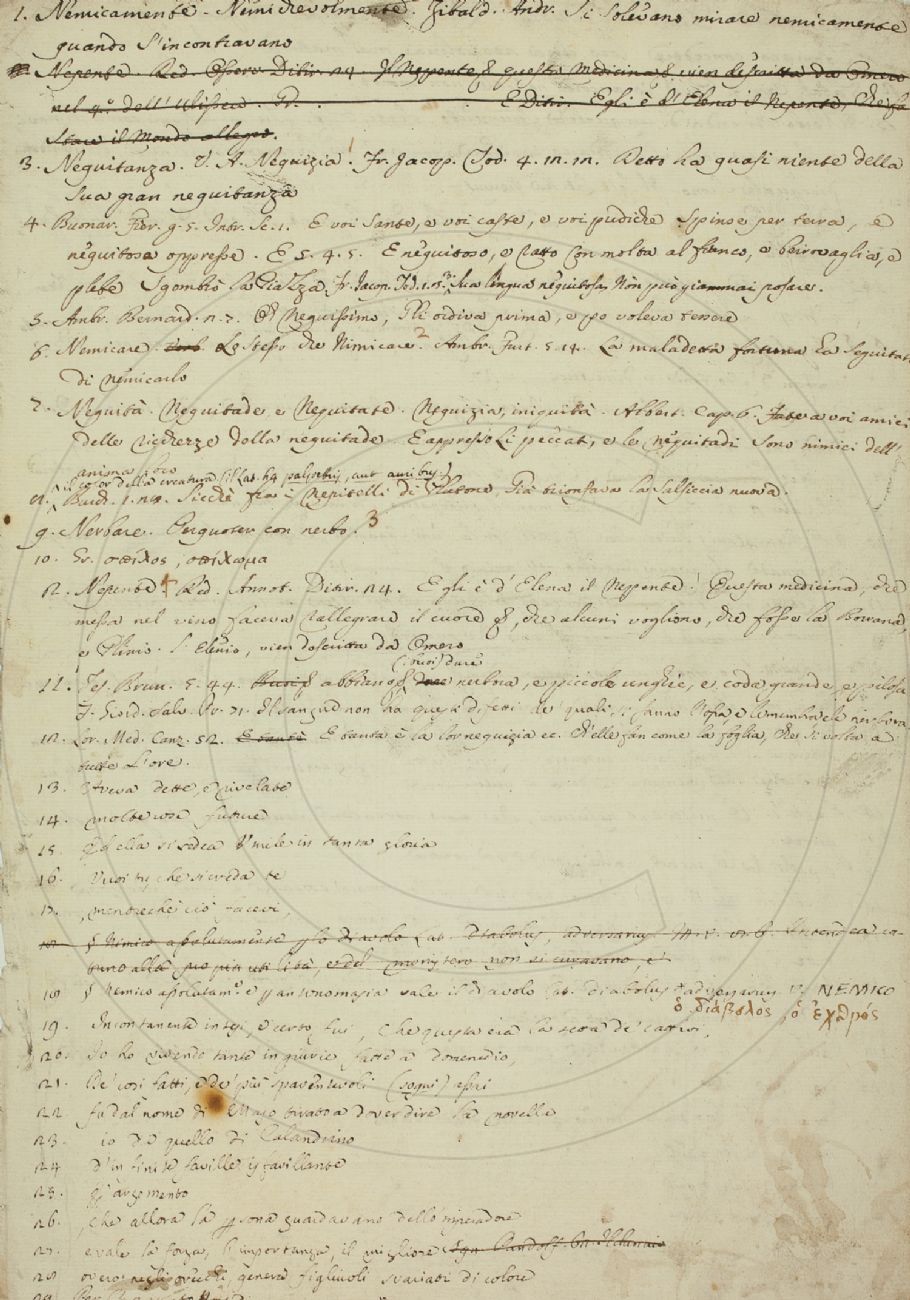 1. Nemicamente. Nimichevolmente. Zibald. Andr. Si solevano mirare nemicamente
quando s'incontravano
Nepente. Red. Ditir. 24. Il Neppente questa medicina vien descritta da Omero
nel 4.º dell'Ulissea. E Ditir. Egli è d'Elena il Nepente, che fa
stare il Mondo allegro.
3. Nequitanza. V. A. Nequizia. Fr. Jacop. Tod. 4. Detto ha quasi niente della
sua gran nequitanza
4. Buonar. Fier. g. 5. Intr. Sc. 1. E voi sante, e voi caste, e voi pudiche spinose per terra, e
nequitosa oppresse. E 5. 4. 5. E nequitoso, e tatto con molta al fianco, e
plebe sgombrò la Piazza Fr. Jacop. Tod. Sua lingua nequitosa Non può giammai posare.
5. Ambr. Bernard. Nequissimo, ordiva prima, e poi voleva tenere
6. Nemicare. Verb. Lo stesso che Nimicare. 2 Ambr. Furt. 5. 14. La maladetta fortuna ha seguitat.
di nemicarlo
7. Nequità. Nequitade, e Nequitate. Nequizia, iniquità. Albert. Cap. 6. Fate a voi amici
delle ricchezze della nequitade. E appresso: Li peccati, e le nequitadi sono nimici dell'
anima
color della creatura Lat. palpebris, aut auribus
8. Burch. 1. Sicchè fra i Nepitelli di Plutone, Già trionfava la salsiccia nuova.
9. Nerbare. Percuoter con nerbo. 3
10. Gr. σπίλος, σπίλωμα
12. Nepente 4 Red. Annot. Ditir. 24. Egli è d'Elena il Neppente! Questa medicina, che
messa nel vino faceva rallegrare il cuore, che alcuni vogliono, che fosse la Borrana,
e Plinio l'Elenio, vien descritta da Omero
(buoi) dure
11. Tes. Brun. 5. 44. abbiano dure nerbora, e piccole unghie, e coda grande, e pilosa
Il sangue non ha questi difetti de' quali si fanno l'ossa, e le membra e le nerbora
12. Lor. Med. Canz. 52. E tanta E tanta è la lor nequizia ec. Ch'elle fan come la foglia, Che si volta a
tutte l'ore.
13. aveva dette, e rivelate
14. molte cose future
15. Ed ella si sedea Umile in tanta gloria
16. Vuoi tu, che si creda te
17. , mentrechè ciò facevi,
18 § Nimico assolutamente lo diavolo Lat. Diabolus, adversarius
alla più utilità, e del monistero non si curavano, e
18 § Nemico assolutam.e e per antonomasia vale il diavolo lat. diabolus adversarius V. NEMICO
ὁ διάβολος, ὁ ἐχθρός
19. Incontanente intesi, e certo fui, Che questa era la setta de' cattivi,
20. Io ho vivendo tante ingiurie fatte a Domenedio,
21. De' così fatti, e de' più spaventevoli (sogni) assai
22 fu dal nome di Mazzo tirato a dover dire la novella
23. io di quello di Calandrino
24 d'infinite faville isfavillante
25. argomento
26. , che allora la persona guardavano dello imperadore
27. e vale la forza, l'importanza, il migliore
28 overo negli orecchi, genera figliuoli svariati di colore
29